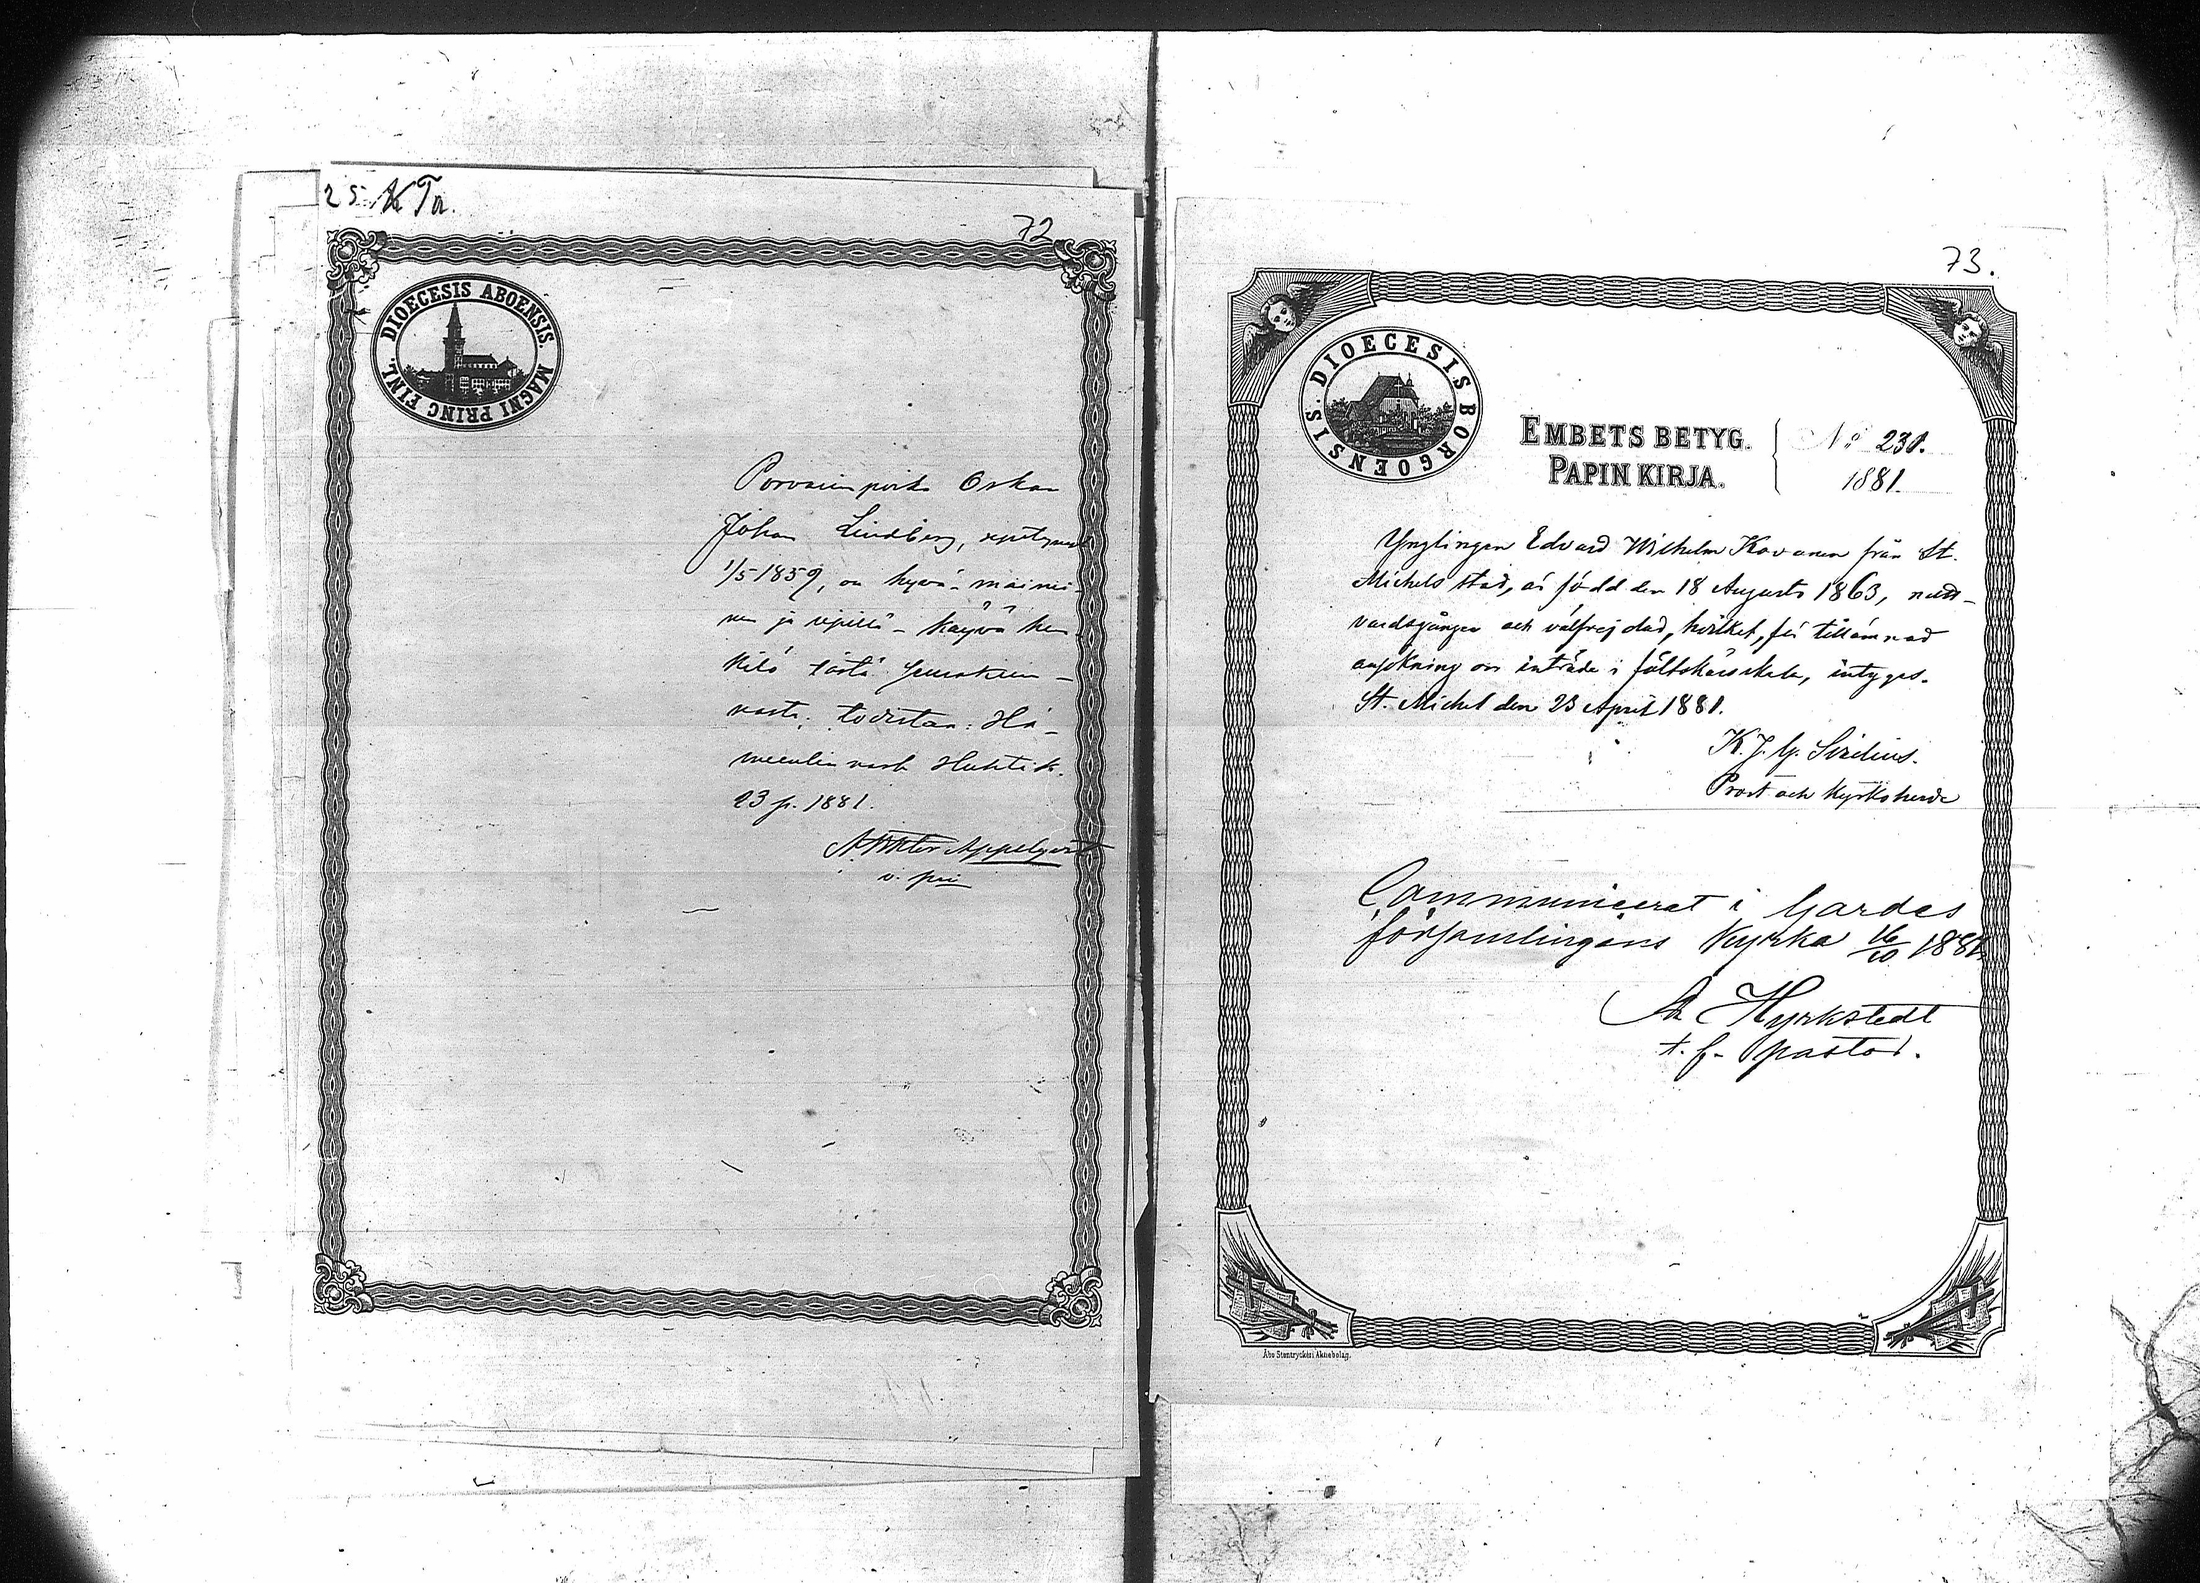 25. K Tn.
72
DIOECESIS ABOENSIS. MAGNI PRINC FINL.
Porvarinpoika Oskar
Johan Lindberg, syntynyt
1/5 1859, on hyvä-mainei-
nen ja ripillä-käypä hen-
kilö tästä seurakun-
nasta; todistan: Hä-
meenlinnasta Huhtik.
23 p. 1881.
N. Viktor Appelqvist
v. pni
73.
DIOECESIS BORGOENSIS.
EMBETS BETYG.
PAPIN KIRJA.
No 231.
1881.
Ynglingen Edvard Wilhelm Kovanen från St.
Michels stad, är född den 18 Augusti 1863, natt-
vardsgången och välfrejdad, hvilket, för tillämnad
ansökning om inträde i fältskärsskola, intygas.
St. Michel den 23 April 1881.
K. J. G. Sirelius.
Prost och Kyrkoherde
Communicerat i Gardes
församlingens Kyrka 16/10 1881.
Hyrkstedt
t. f. pastor.
Åbo Stentryckeri Aktiebolag.